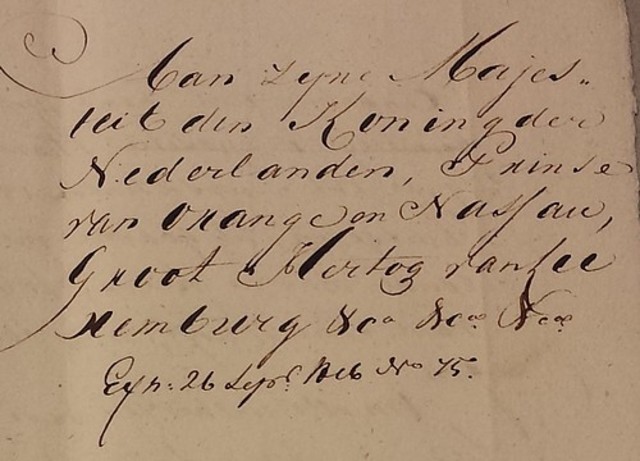 Aan zyne Majes„
teit den Koning der
Nederlanden, Prinse
van Orange en Nassau,
Groot Hertog van Lu
xemburg &ca &ca &ca
Exh: 26 Sept. No 75.